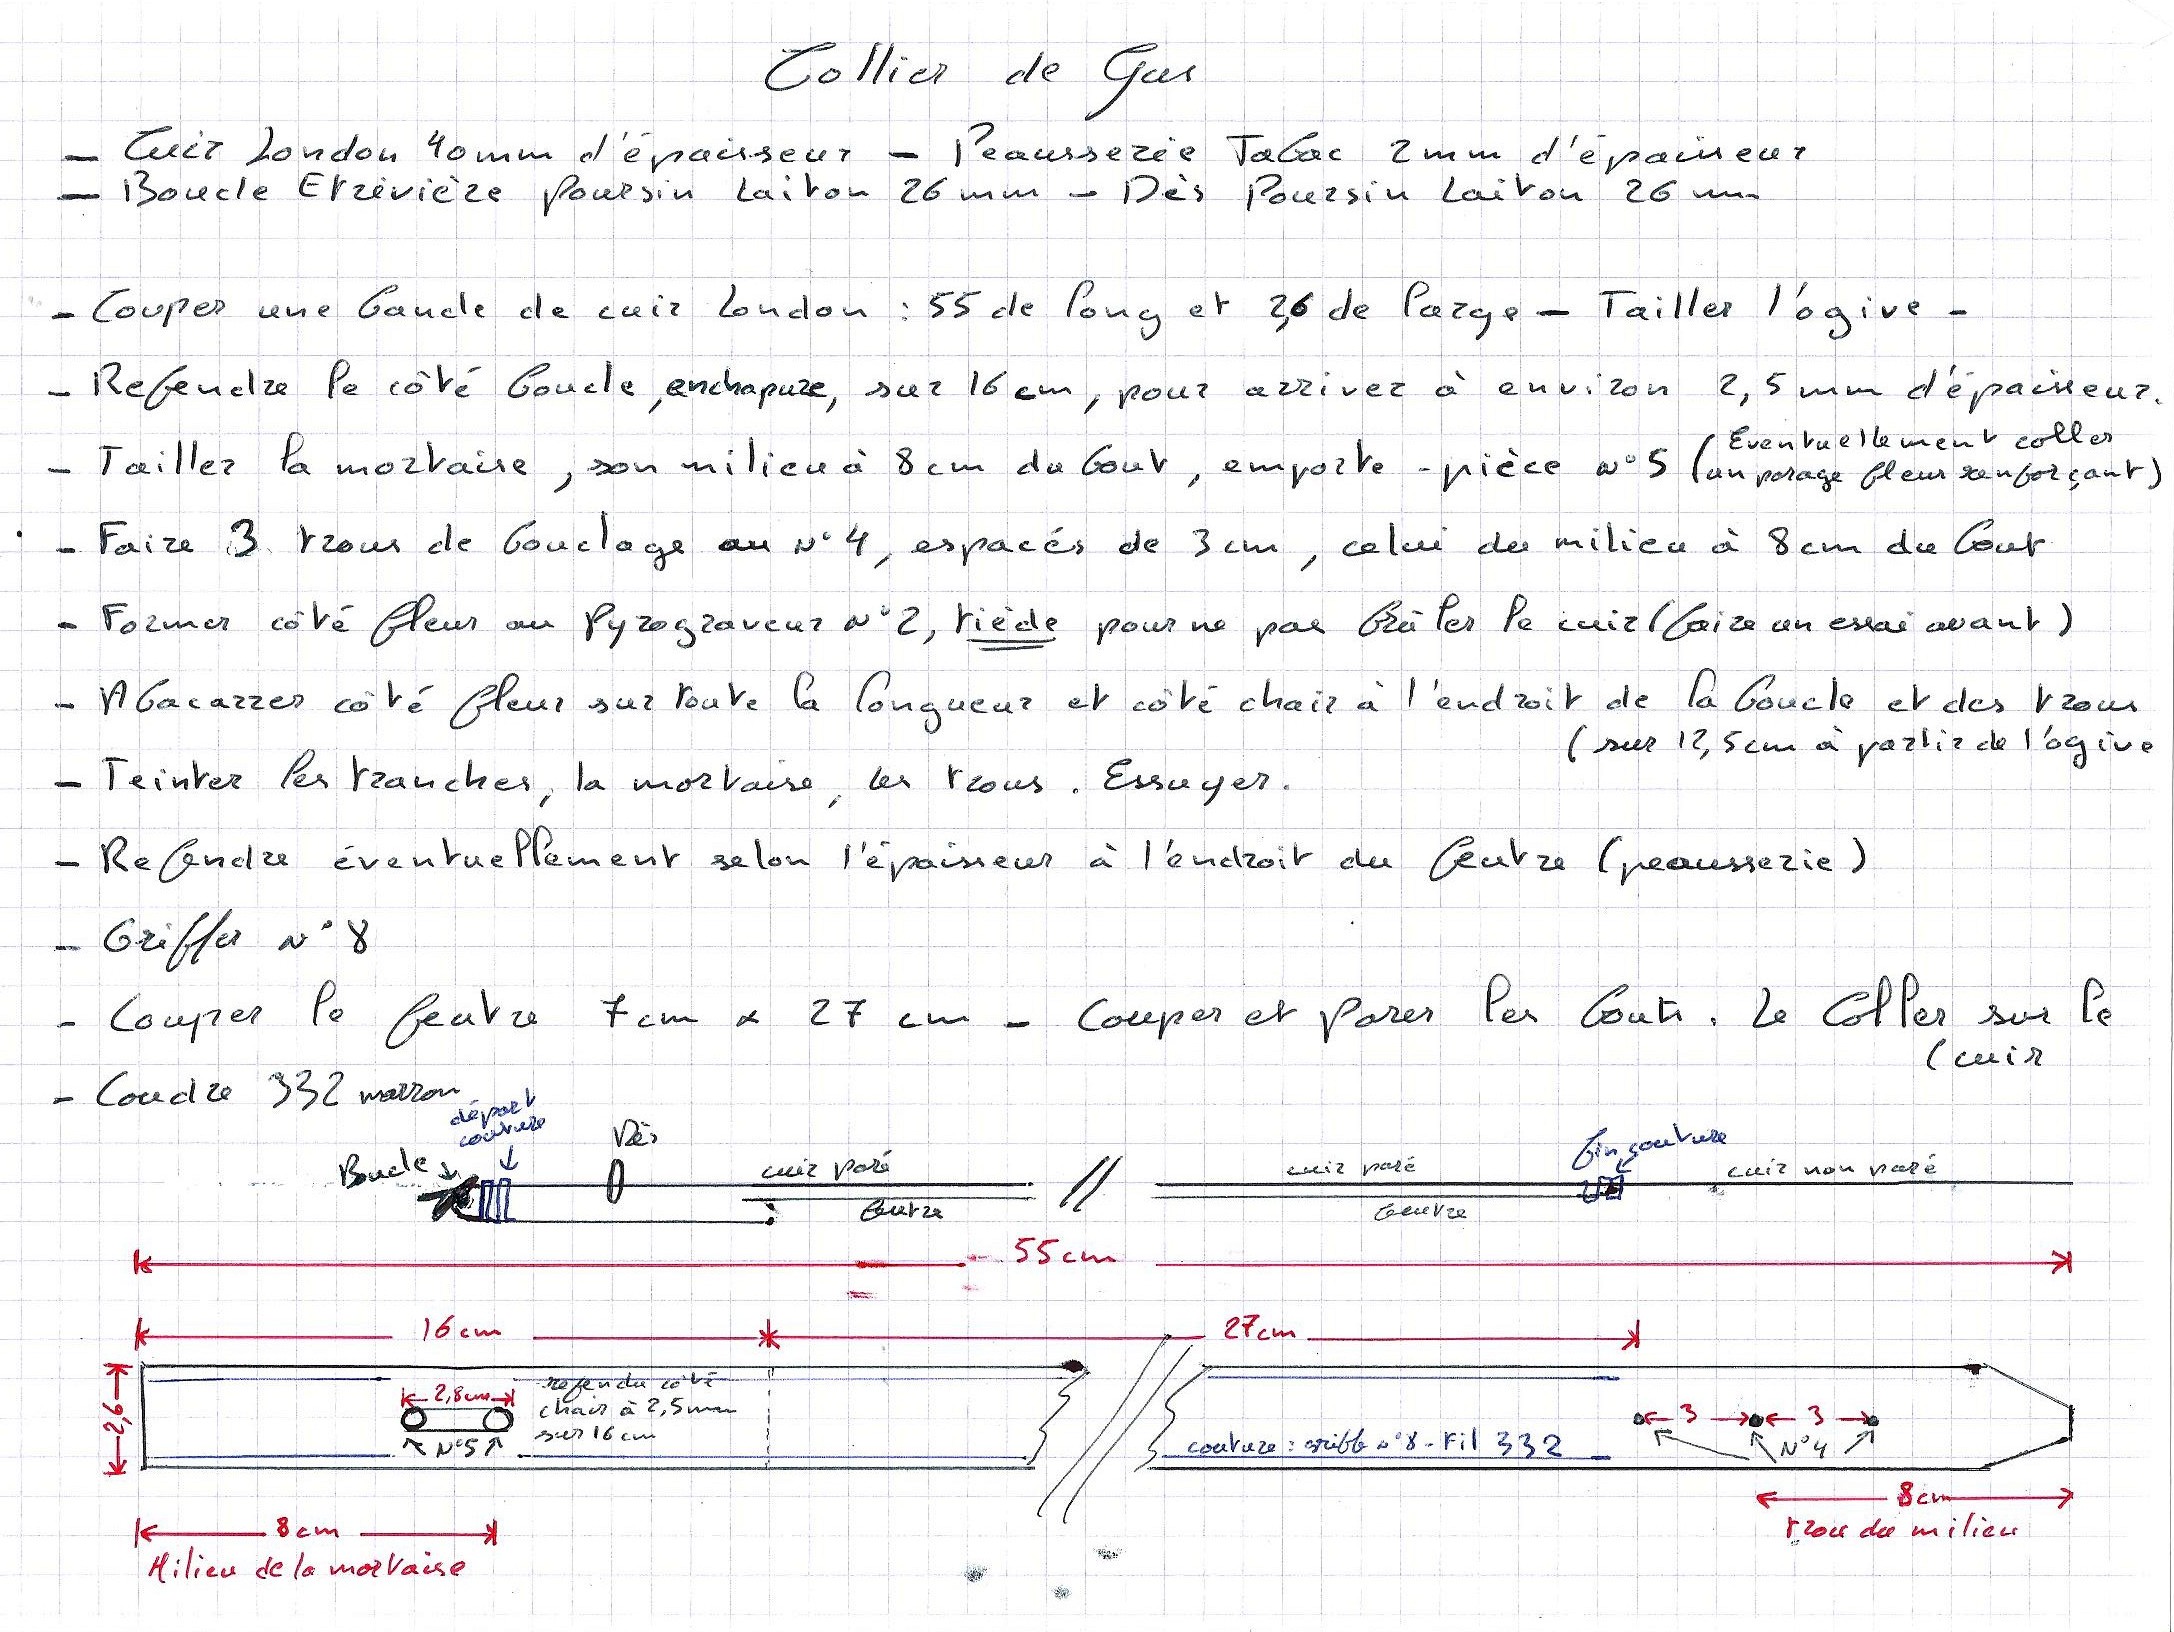 Collier de Gus
- Cuir London 40mm d'épaisseur - Peausserie Tabac 2mm d'épaisseur
- Boucle Etrivière Poursin Laiton 26mm - Dès Poursin Laiton 26 mm
- Couper une bande de cuir London : 55 de long et 2,6 de large - Tailler l'ogive -
- Refendre le côté boucle, enchapure, sur 16 cm, pour arriver à environ 2,5 mm d'épaisseur.
- Tailler la mortaise, son milieu à 8cm du bout, emporte-pièce n°5 (Eventuellement coller
un parage fleur renforçant)
- Faire 3 trous de bouclage au N°4, espacés de 3cm, celui du milieu à 8cm du bout
- Former côté fleur au Pyrograveur N°2, tiède pour ne pas brûler le cuir (faire un essai avant)
- Abacarrer côté fleur sur toute la longueur et côté chair à l'endroit de la boucle et des trous
(sur 12,5cm à partir de l'ogive
- Teinter les tranches, la mortaise, les trous. Essuyer.
- Refendre éventuellement selon l'épaisseur à l'endroit du feutre (peausserie)
- Griffer N°8
- Couper le feutre 7cm x 27 cm - Couper et Parer les bouts. Le Coller sur le
(cuir
- Coudre 332 marron
départ
couture
Bucle
Dès
cuir paré
feutre
cuir paré
feutre
fin couture
cuir non paré
55cm
16cm
27cm
2,6
2,8cm
N°5
refendu côté
chair à 2,5mm
sur 16cm
couture : griffe n°8 - Fil 332
3
3
N°4
8cm
Milieu de la mortaise
8cm
trou du milieu